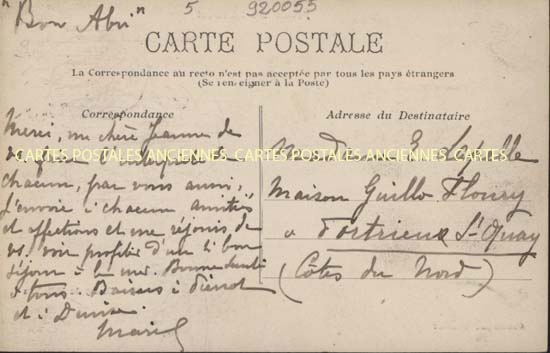 "Bon Abri"
5 920055
CARTE POSTALE
La Correspondance au recto n'est pas acceptée par tous les pays étrangers
(Se renseigner à la Poste)
Correspondance
Adresse du Destinataire
Merci, ma chère Jeanne de
CARTES POSTALES ANCIENNES CARTES POSTALES ANCIENNES CARTES POSTALES
chacun, par vous aussi,
J'envoie à chacun amitiés
et affections et me réjouis de
vs. voir profiter d'un si bon
séjour à la mer. Bonne santé
à tous. Baisers à
et à Denise.
Madame
Maison Guillo Floury
à Portrieux St Quay
(Côtes du Nord)